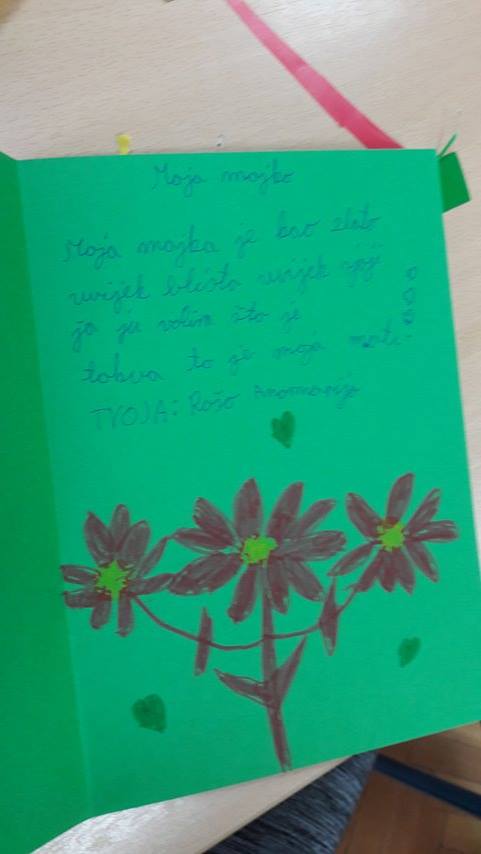 Moja majka
Moja majka je kao zlato
uvijek blista uvijek sjaji
ja ju volim što je
takva to je moja mati-
TVOJA: Rašo Anamarija